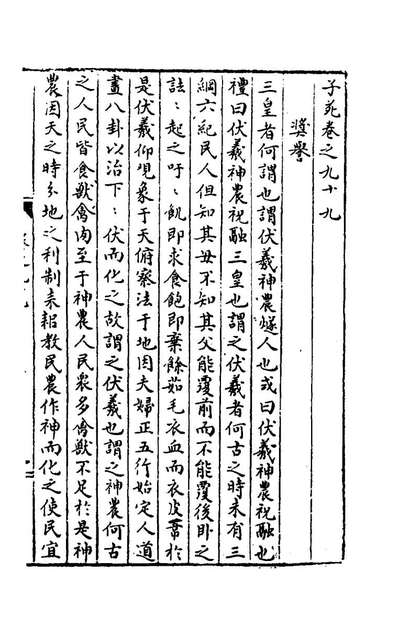 子苑卷之九十九
獎譽
三皇者何謂也謂伏羲神農燧人也或曰伏羲神農祝融也
禮曰伏羲神農祝融三皇也謂之伏羲者何古之時未有三
綱六紀民人但知其母不知其父能覆前而不能覆後卧之
詓〻起之吁〻飢即求食飽即棄餘茹毛衣血而衣皮葦於
是伏羲仰覌象于天俯察法于地因夫婦正五行始定人道
畫八卦以治下〻伏而化之故謂之伏羲也謂之神農何古
之人民皆食獸禽肉至于神農人民衆多禽獸不足於是神
農因天之時分地之利制耒耜教民農作神而化之使民宜